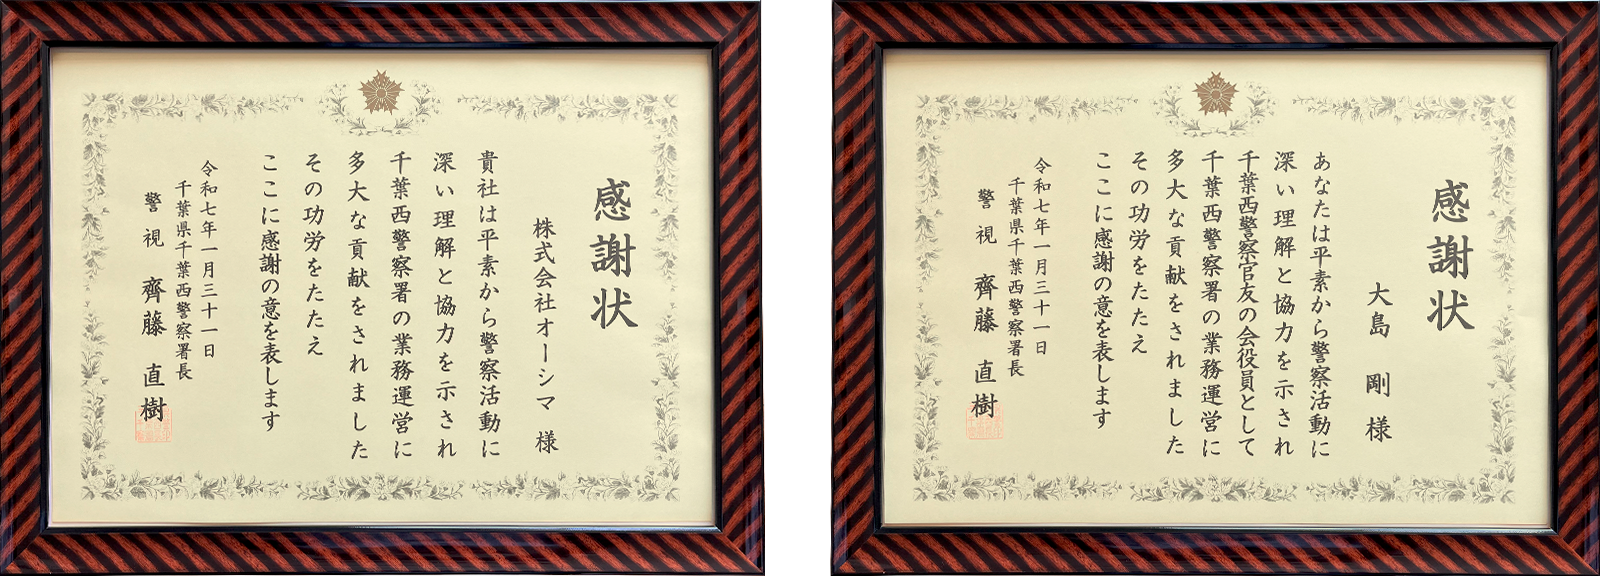 感謝状
株式会社オーシマ 様
貴社は平素から警察活動に
深い理解と協力を示され
千葉西警察署の業務運営に
多大な貢献をされました
その功労をたたえ
ここに感謝の意を表します
令和七年一月三十一日
千葉県千葉西警察署長
警視 齊藤 直樹
感謝状
大島 剛 様
あなたは平素から警察活動に
深い理解と協力を示され
千葉西警察官友の会役員として
千葉西警察署の業務運営に
多大な貢献をされました
その功労をたたえ
ここに感謝の意を表します
令和七年一月三十一日
千葉県千葉西警察署長
警視 齊藤 直樹